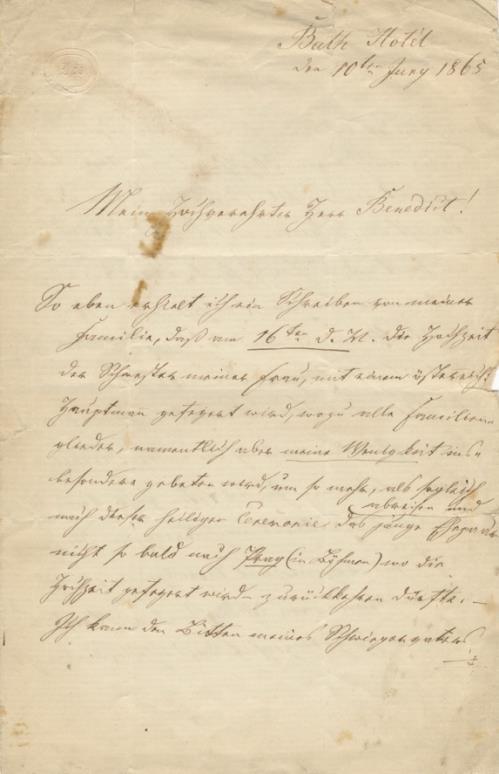 Bath Hotél
den 10ten Juny 1865
Mein Hochverehrter Herr Benedict!
So eben erhielt ich ein Schreiben von meiner
Familie, daß am 16ten d. M. die Hochzeit
der Schwester meiner Frau, mit einem österreich:
Hauptman gefeyert wird, wozu alle Familien
glieder, namentlich aber meine Wenigkeit ins=
besondere gebeten wird, um so mehr, als sogleich
nach dieser heiligen Ceremonie, das junge Ehepaar
abreisen und
nicht so bald nach Prag (in Böhmen) wo die
Hochzeit gefeyert wird – zurückkehren dürfte. –
Ich kann den Bitten meines Schwiegervaters